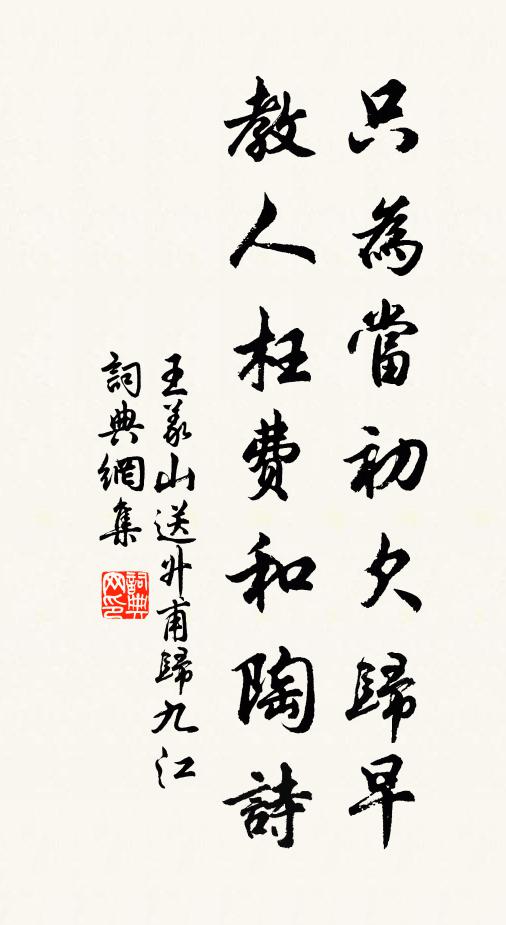 只為當初欠歸早
教人枉費和陶詩
王義山送外甫歸九江
詞典網集
詞典网印